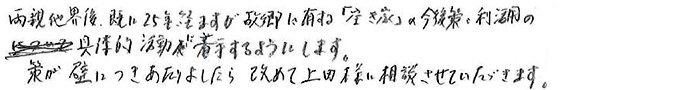 両親他界後、既に25年経ますが故郷に有する「空き家」の今後策・利活用の
具体的活動に着手するようにします。
策が壁につきあたりましたら改めて上田様に相談させていただきます。